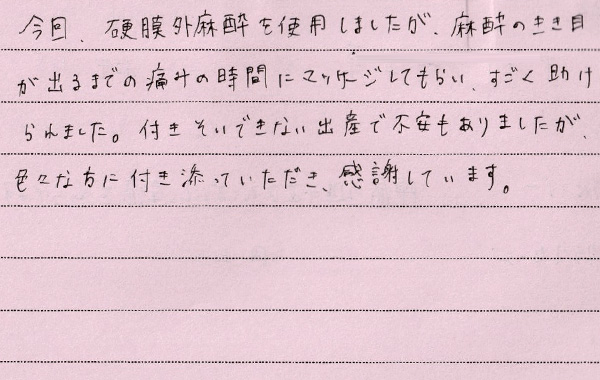 今回、硬膜外麻酔を使用しましたが、麻酔のきき目
が出るまでの痛みの時間にマッサージしてもらい、すごく助け
られました。付きそいできない出産で不安もありましたが、
色々な方に付き添っていただき、感謝しています。